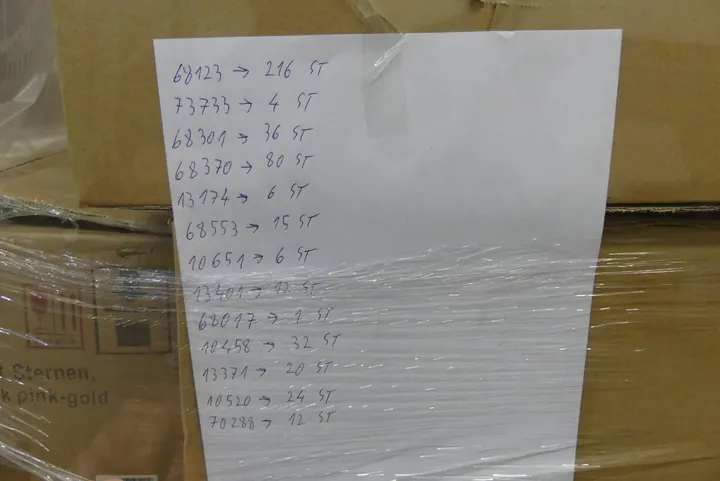 68123 → 216 ST
73733 → 4 ST
68301 → 36 ST
68370 → 80 ST
13174 → 6 ST
68553 → 15 ST
10651 → 6 ST
13401 → 12 ST
68017 → 1 ST
10458 → 32 ST
13371 → 20 ST
10520 → 24 ST
70288 → 12 ST
Sternen,
k pink-gold